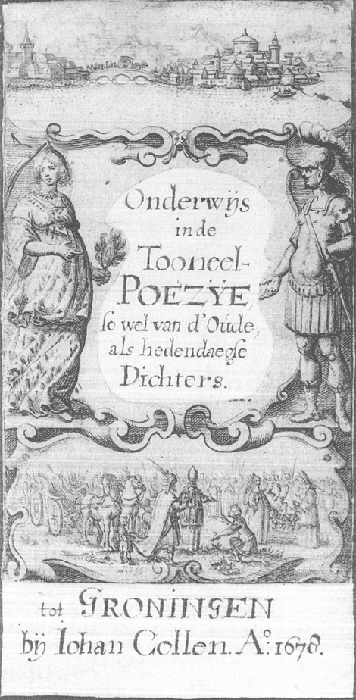 Onderwijs
in de
Tooneel-
POEZYE
so wel van d'Oude,
als hedendaegse
Dichters.
tot GRONINGEN
bij Iohan Collen. Aº: 1678.